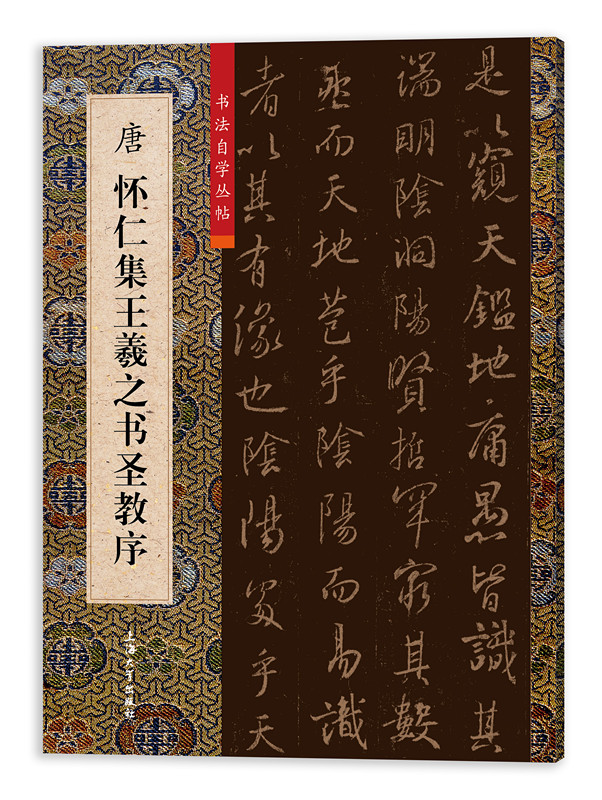 唐 怀仁集王羲之书圣教序
书法自学丛帖
上海大学出版社
是以窺天鑑地庸愚皆識其
端明陰洞陽賢哲罕窮其數
然而天地苞乎陰陽而易識
者以其有像也陰陽處乎天